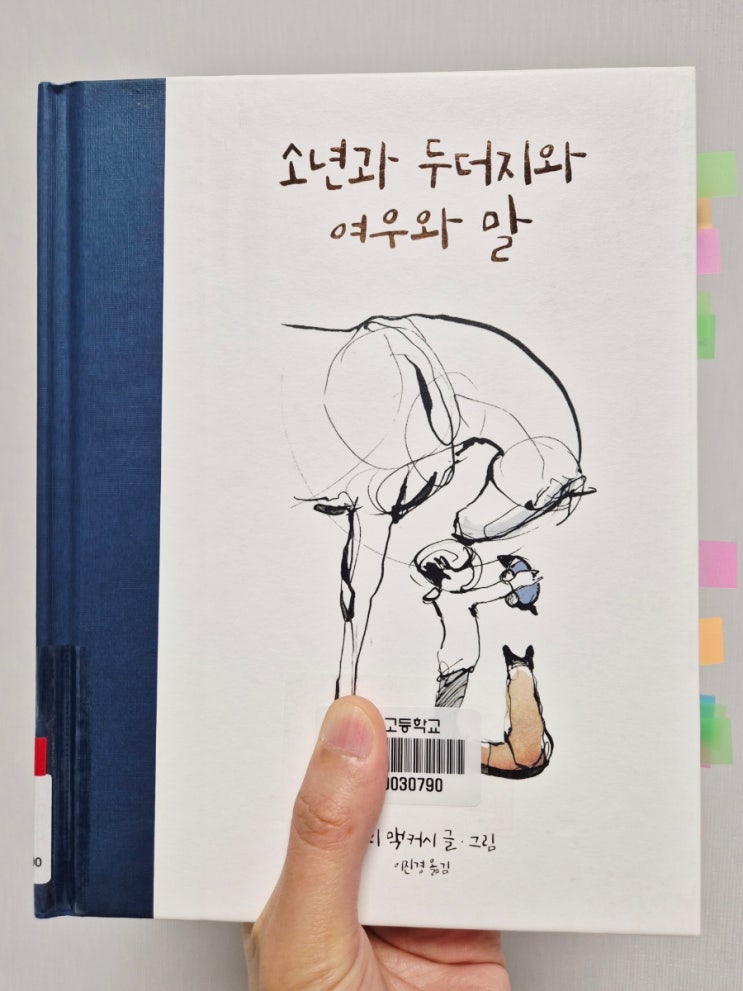 소년과 두더지와
여우와 말
고등학교
0030790
맥커시 글·그림
이진경 옮김